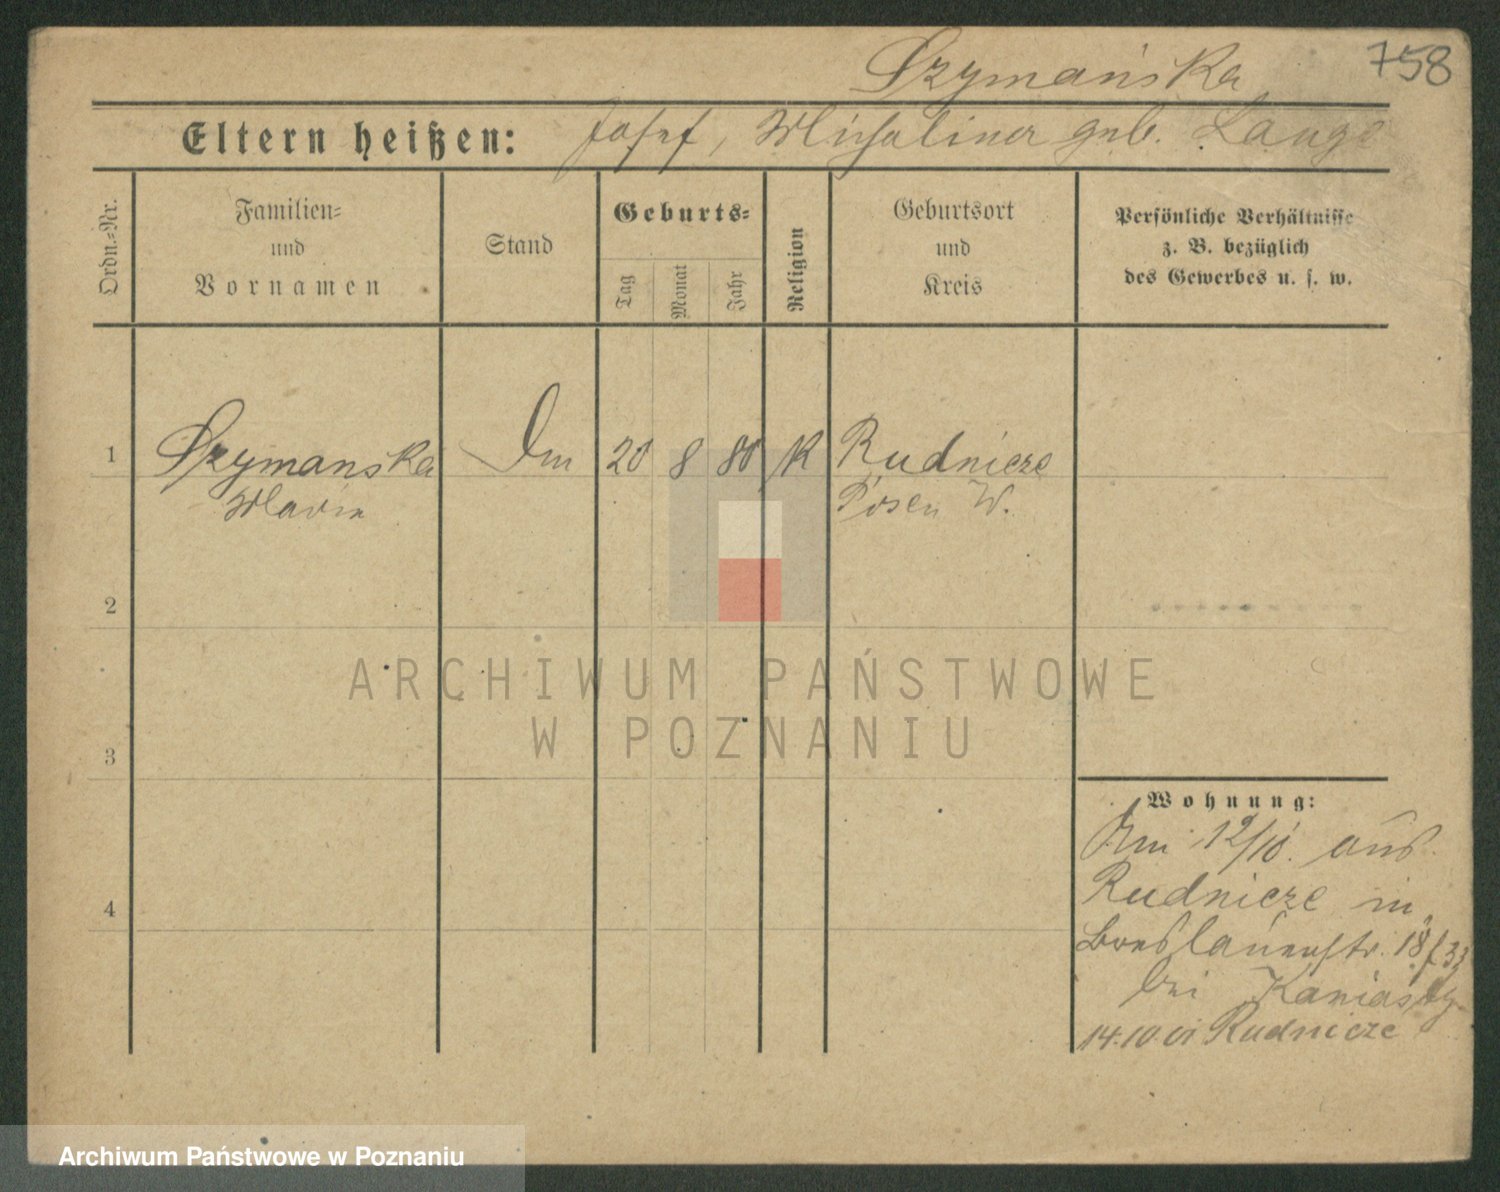 Szymańska 758
Eltern heißen: Josef, Michalina geb. Lange
Ordn.-Nr.
Familien-
und
Vornamen
Stand
Geburts-
Tag
Monat
Jahr
Religion
Geburtsort
und
Kreis
Persönliche Verhältnisse
z. B. bezüglich
des Gewerbes u. s. w.
1 Szymanska 20 8 80 K Rudnicze
Maria Posen W.
2
3
4
Wohnung:
aus
Rudnicze in
Breslauerstr. 18
bei
14.10.01 Rudnicze
ARCHIWUM PAŃSTWOWE
W POZNANIU
Archiwum Państwowe w Poznaniu